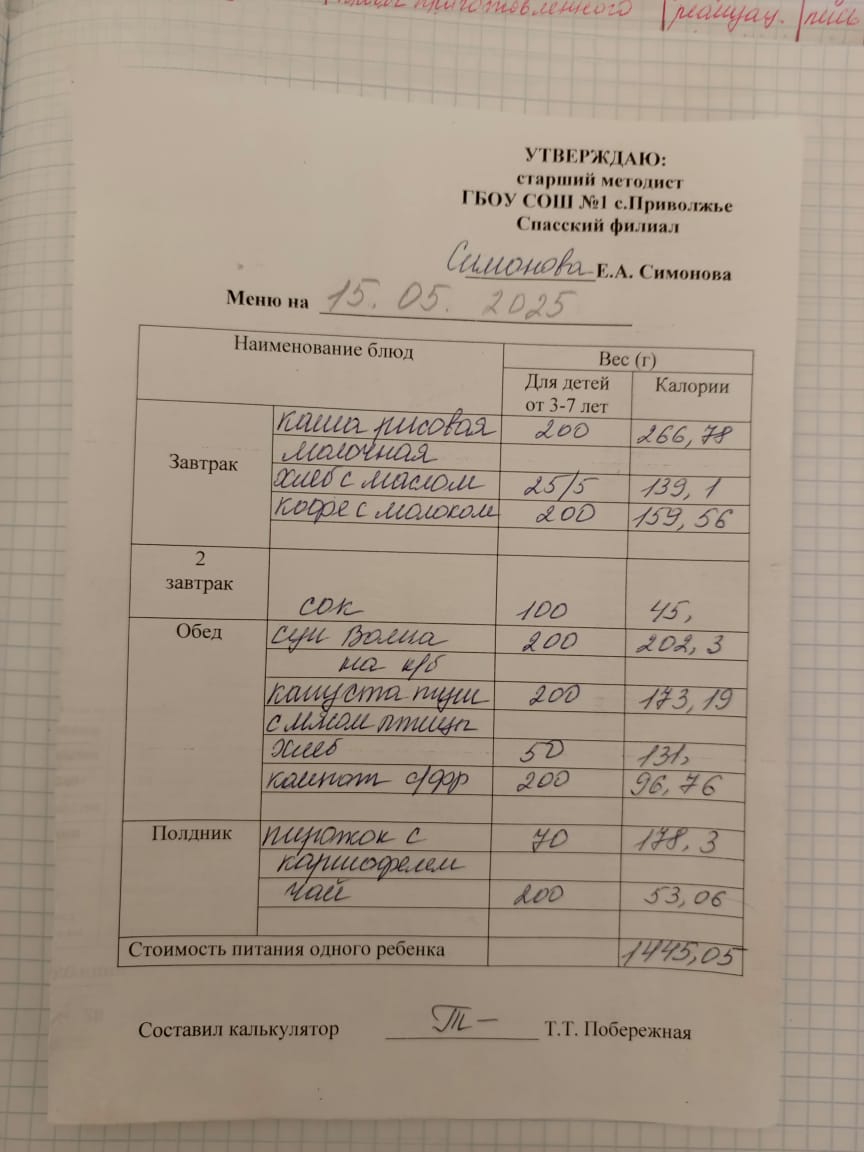 приготовленного
УТВЕРЖДАЮ:
старший методист
ГБОУ СОШ №1 с.Приволжье
Спасский филиал
Симонова Е.А. Симонова
Меню на 15. 05. 2025
Наименование блюд Вес (г)
Для детей от 3-7 лет Калории
Завтрак каша рисовая 200 266,78
молочная
хлеб с маслом 25/5 139,1
кофе с молоком 200 159,56
2 завтрак сок 100 45,
Обед суп Волна 200 202,3
на к/б
капуста туш 200 173,19
с мясом птицы
хлеб 50 131,
компот с/фр 200 96,76
Полдник пирожок с 70 178,3
картофелем
чай 200 53,06
Стоимость питания одного ребенка 1445,05
Составил калькулятор Т.Т. Побережная